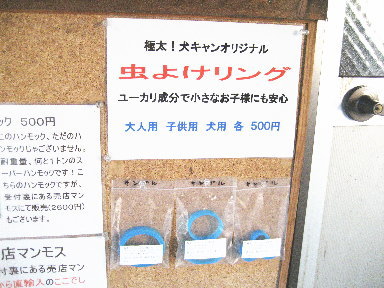 極太!犬キャンオリジナル
虫よけリング
ユーカリ成分で小さなお子様にも安心
大人用 子供用 犬用 各 500円
ック 500円
このハンモック、ただのハ
ンモックじゃございません。
耐重量、何と1トンのス
ーパーハンモックです!こ
ちらのハンモックですが、
受付裏にある売店マン
モスにて販売(2600円)
もございます。
店マンモス
付裏にある売店マ
から直輸入のここでし